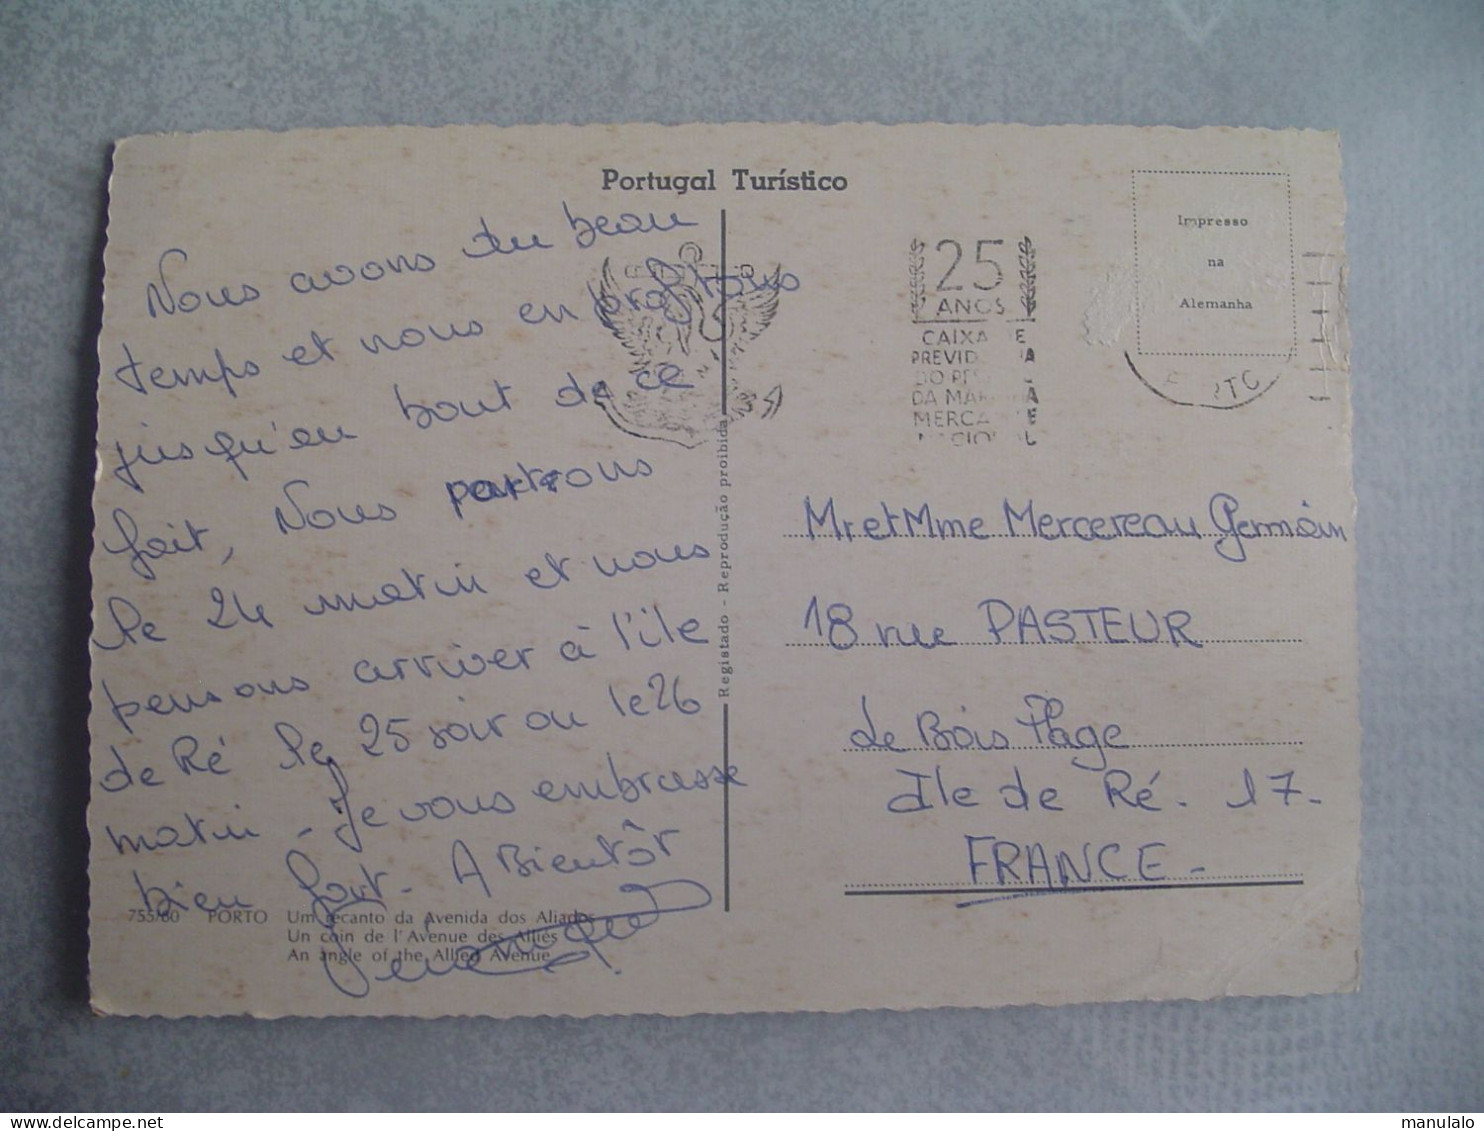 Portugal Turístico
Nous avons du beau
temps et nous en profitons
jusqu'au bout de ce
fait, Nous partirons
le 24 matin et nous
pensons arriver à l'île
de Ré le 25 soir ou le 26
matin - je vous embrasse
bien fort - A Bientôt
755/60 PORTO Um recanto da Avenida dos Aliados
Un coin de l'Avenue des Alliés
An angle of the Allied Avenue
Registado - Reprodução proibida
25
ANOS
CAIXA
PREVID
DA MA
MERCA
Impresso
na
Alemanha
Mr et Mme Mercereau Germain
18 rue PASTEUR
Le Bois Plage
Ile de Ré. 17.
FRANCE -
www.delcampe.net
manulalo